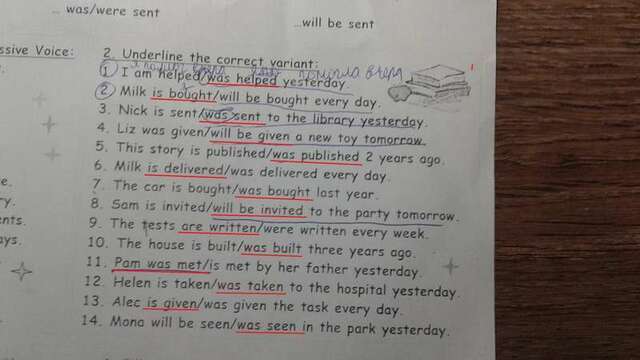 ... was/were sent
...will be sent
ssive Voice:
2. Underline the correct variant:
1 I am helped/was helped yesterday.
2 Milk is bought/will be bought every day.
3. Nick is sent/was sent to the library yesterday.
4. Liz was given/will be given a new toy tomorrow.
5. This story is published/was published 2 years ago.
6. Milk is delivered/was delivered every day.
7. The car is bought/was bought last year.
8. Sam is invited/will be invited to the party tomorrow.
9. The tests are written/were written every week.
10. The house is built/was built three years ago.
11. Pam was met/is met by her father yesterday.
12. Helen is taken/was taken to the hospital yesterday.
13. Alec is given/was given the task every day.
14. Mona will be seen/was seen in the park yesterday.